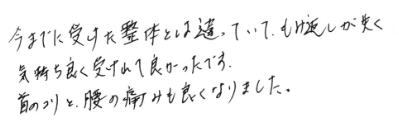 今までに受けた整体とは違っていて、もみ返しが失く
気持ち良く受けれて良かったです。
首のコリと、腰の痛みも良くなりました。